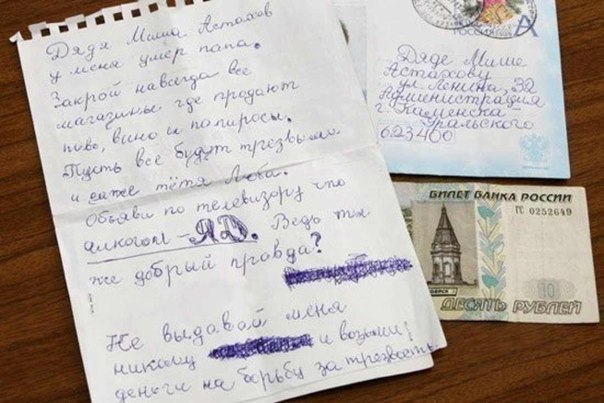 Дядя Миша Астахов
у меня умер папа.
Закрой навсегда все
магазины где продают
пиво, вино и папиросы.
Пусть все будут трезвыми
и даже тётя Люба.
Объяви по телевизору что
алкоголь – ЯД. Ведь ты
же добрый правда?
Не выдавай меня
никому и возьми
деньги на борьбу за трезвость.
РОССИЯ А
Дяде Мише
Астахову
ул. Ленина, 32
Администрация
г. Каменска
Уральского
623400
БИЛЕТ БАНКА РОССИИ
ГС 0252649
10
ДЕСЯТЬ РУБЛЕЙ